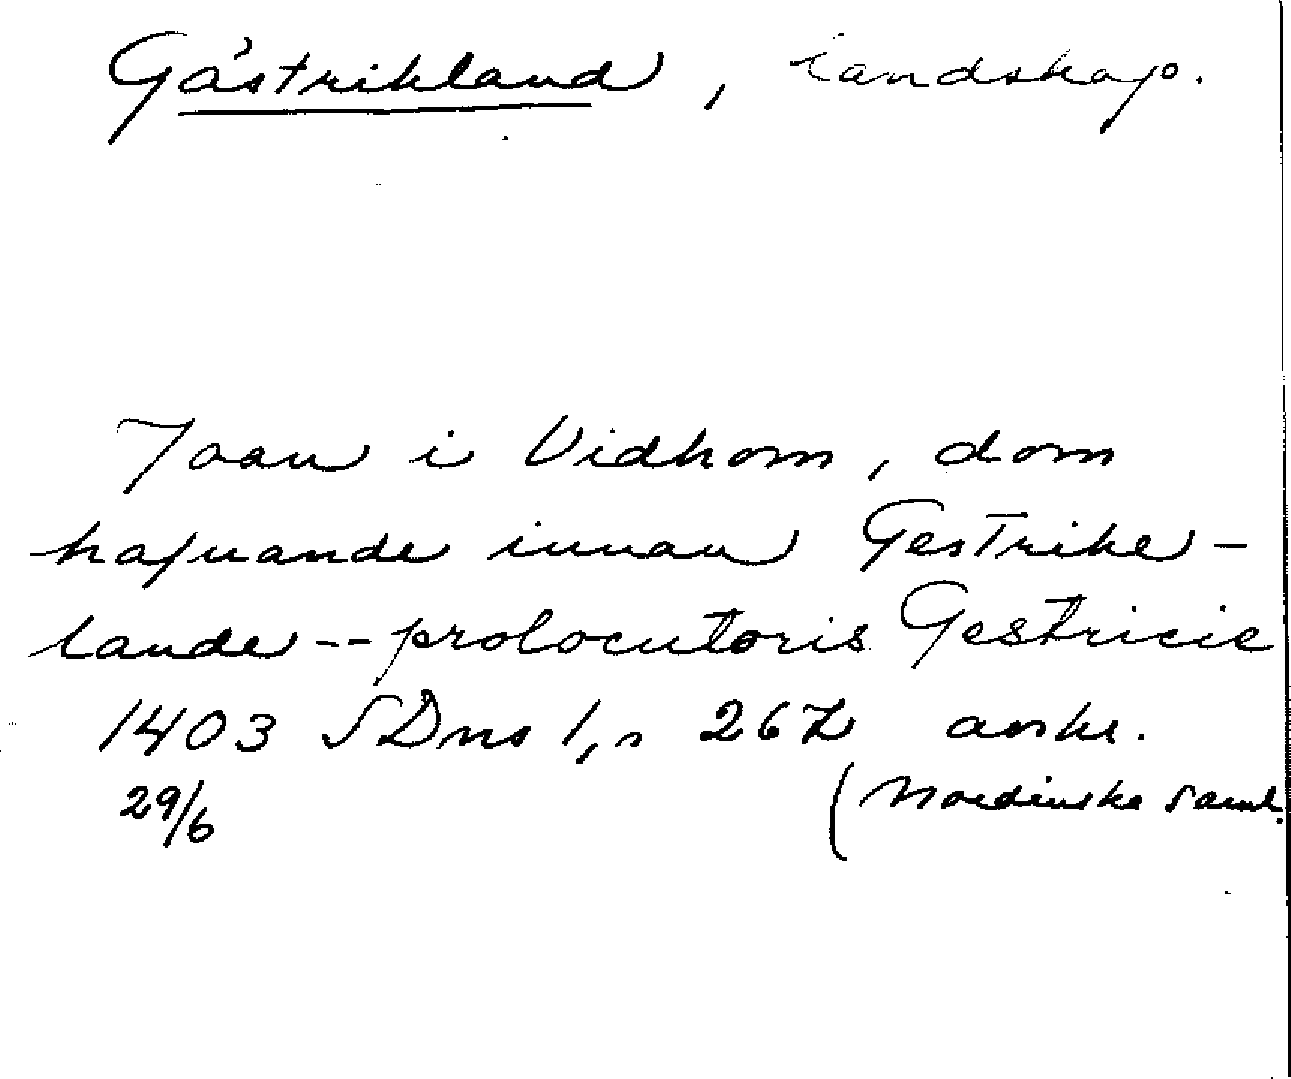 Gästrikland, landskap.
Joan i Vidhom, dom
hafuande innan Gestrike-
lande -- prolocutoris Gestricie
1403 SDns 1, s 267 avskr.
29/6 (Nordinska saml.